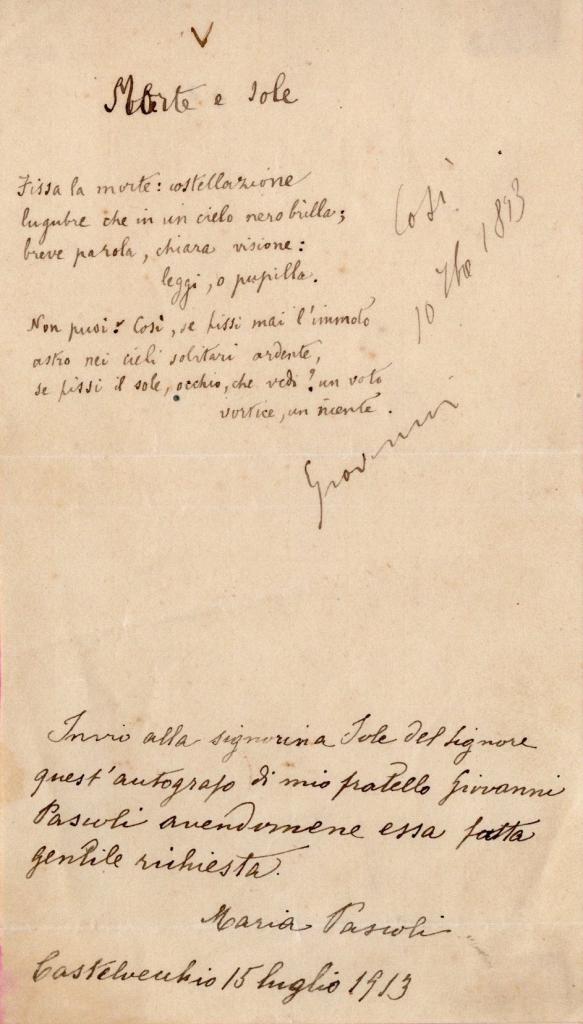 V
Morte e Sole
Fissa la morte: costellazione
lugubre che in un cielo nero brilla;
breve parola, chiara visione:
leggi, o pupilla.
Non puoi? Così, se fissi mai l'immoto
astro nei cieli solitari ardente,
se fissi il sole, occhio, che vedi? un voto
vortice, un niente.
Così.
10 7bre 1893
Giovanni
Invio alla signorina Iole Del Signore
quest'autografo di mio fratello Giovanni
Pascoli avendomene essa fatta
gentile richiesta.
Maria Pascoli
Castelvecchio 15 luglio 1913